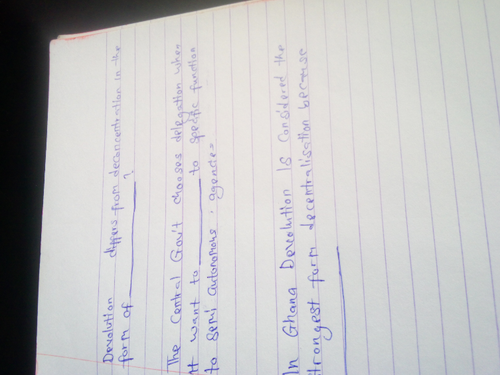 Devolution differs from deconcentration in the
form of ________?
The Central Gov't chooses delegation when
It want to ________ to specific function
to semi autonomous agencies
In Ghana Devolution Is Considered the
strongest form decentralisation because
________